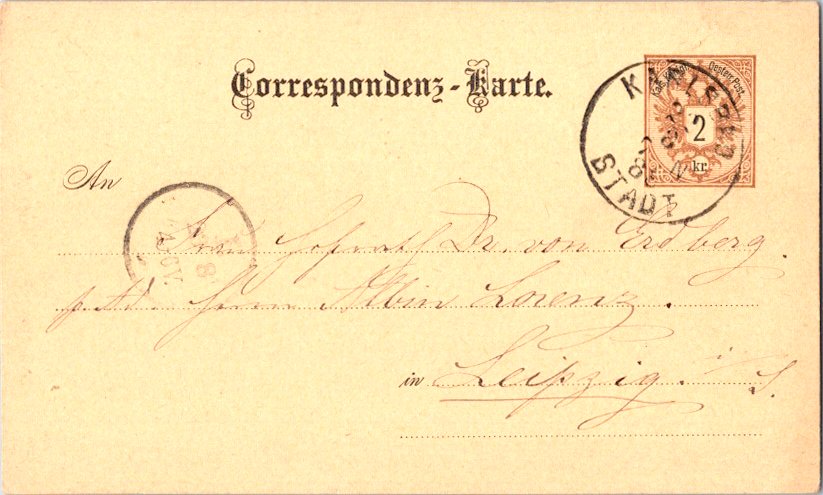 Correspondenz-Karte.
Oesterr. Post.
2
kr
KARLSBAD
STADT
An
Hofrath Dr. von Erdberg.
p. Ad. Herrn Albin Lorenz.
in Leipzig. i/S.
8
NOV.